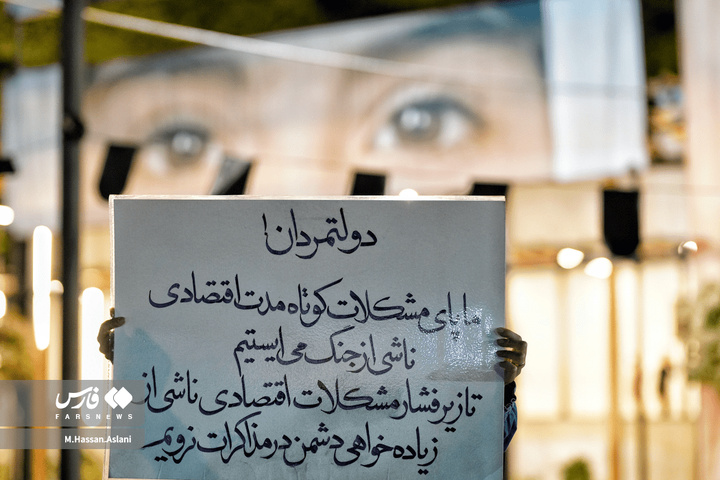 دولتمردان!
ما پای مشکلات کوتاه مدت اقتصادی
ناشی از جنگ می‌ایستیم
تا زیر فشار مشکلات اقتصادی ناشی از
زیاده خواهی دشمن در مذاکرات نرویم
فارس
FARSNEWS
M.Hassan.Aslani